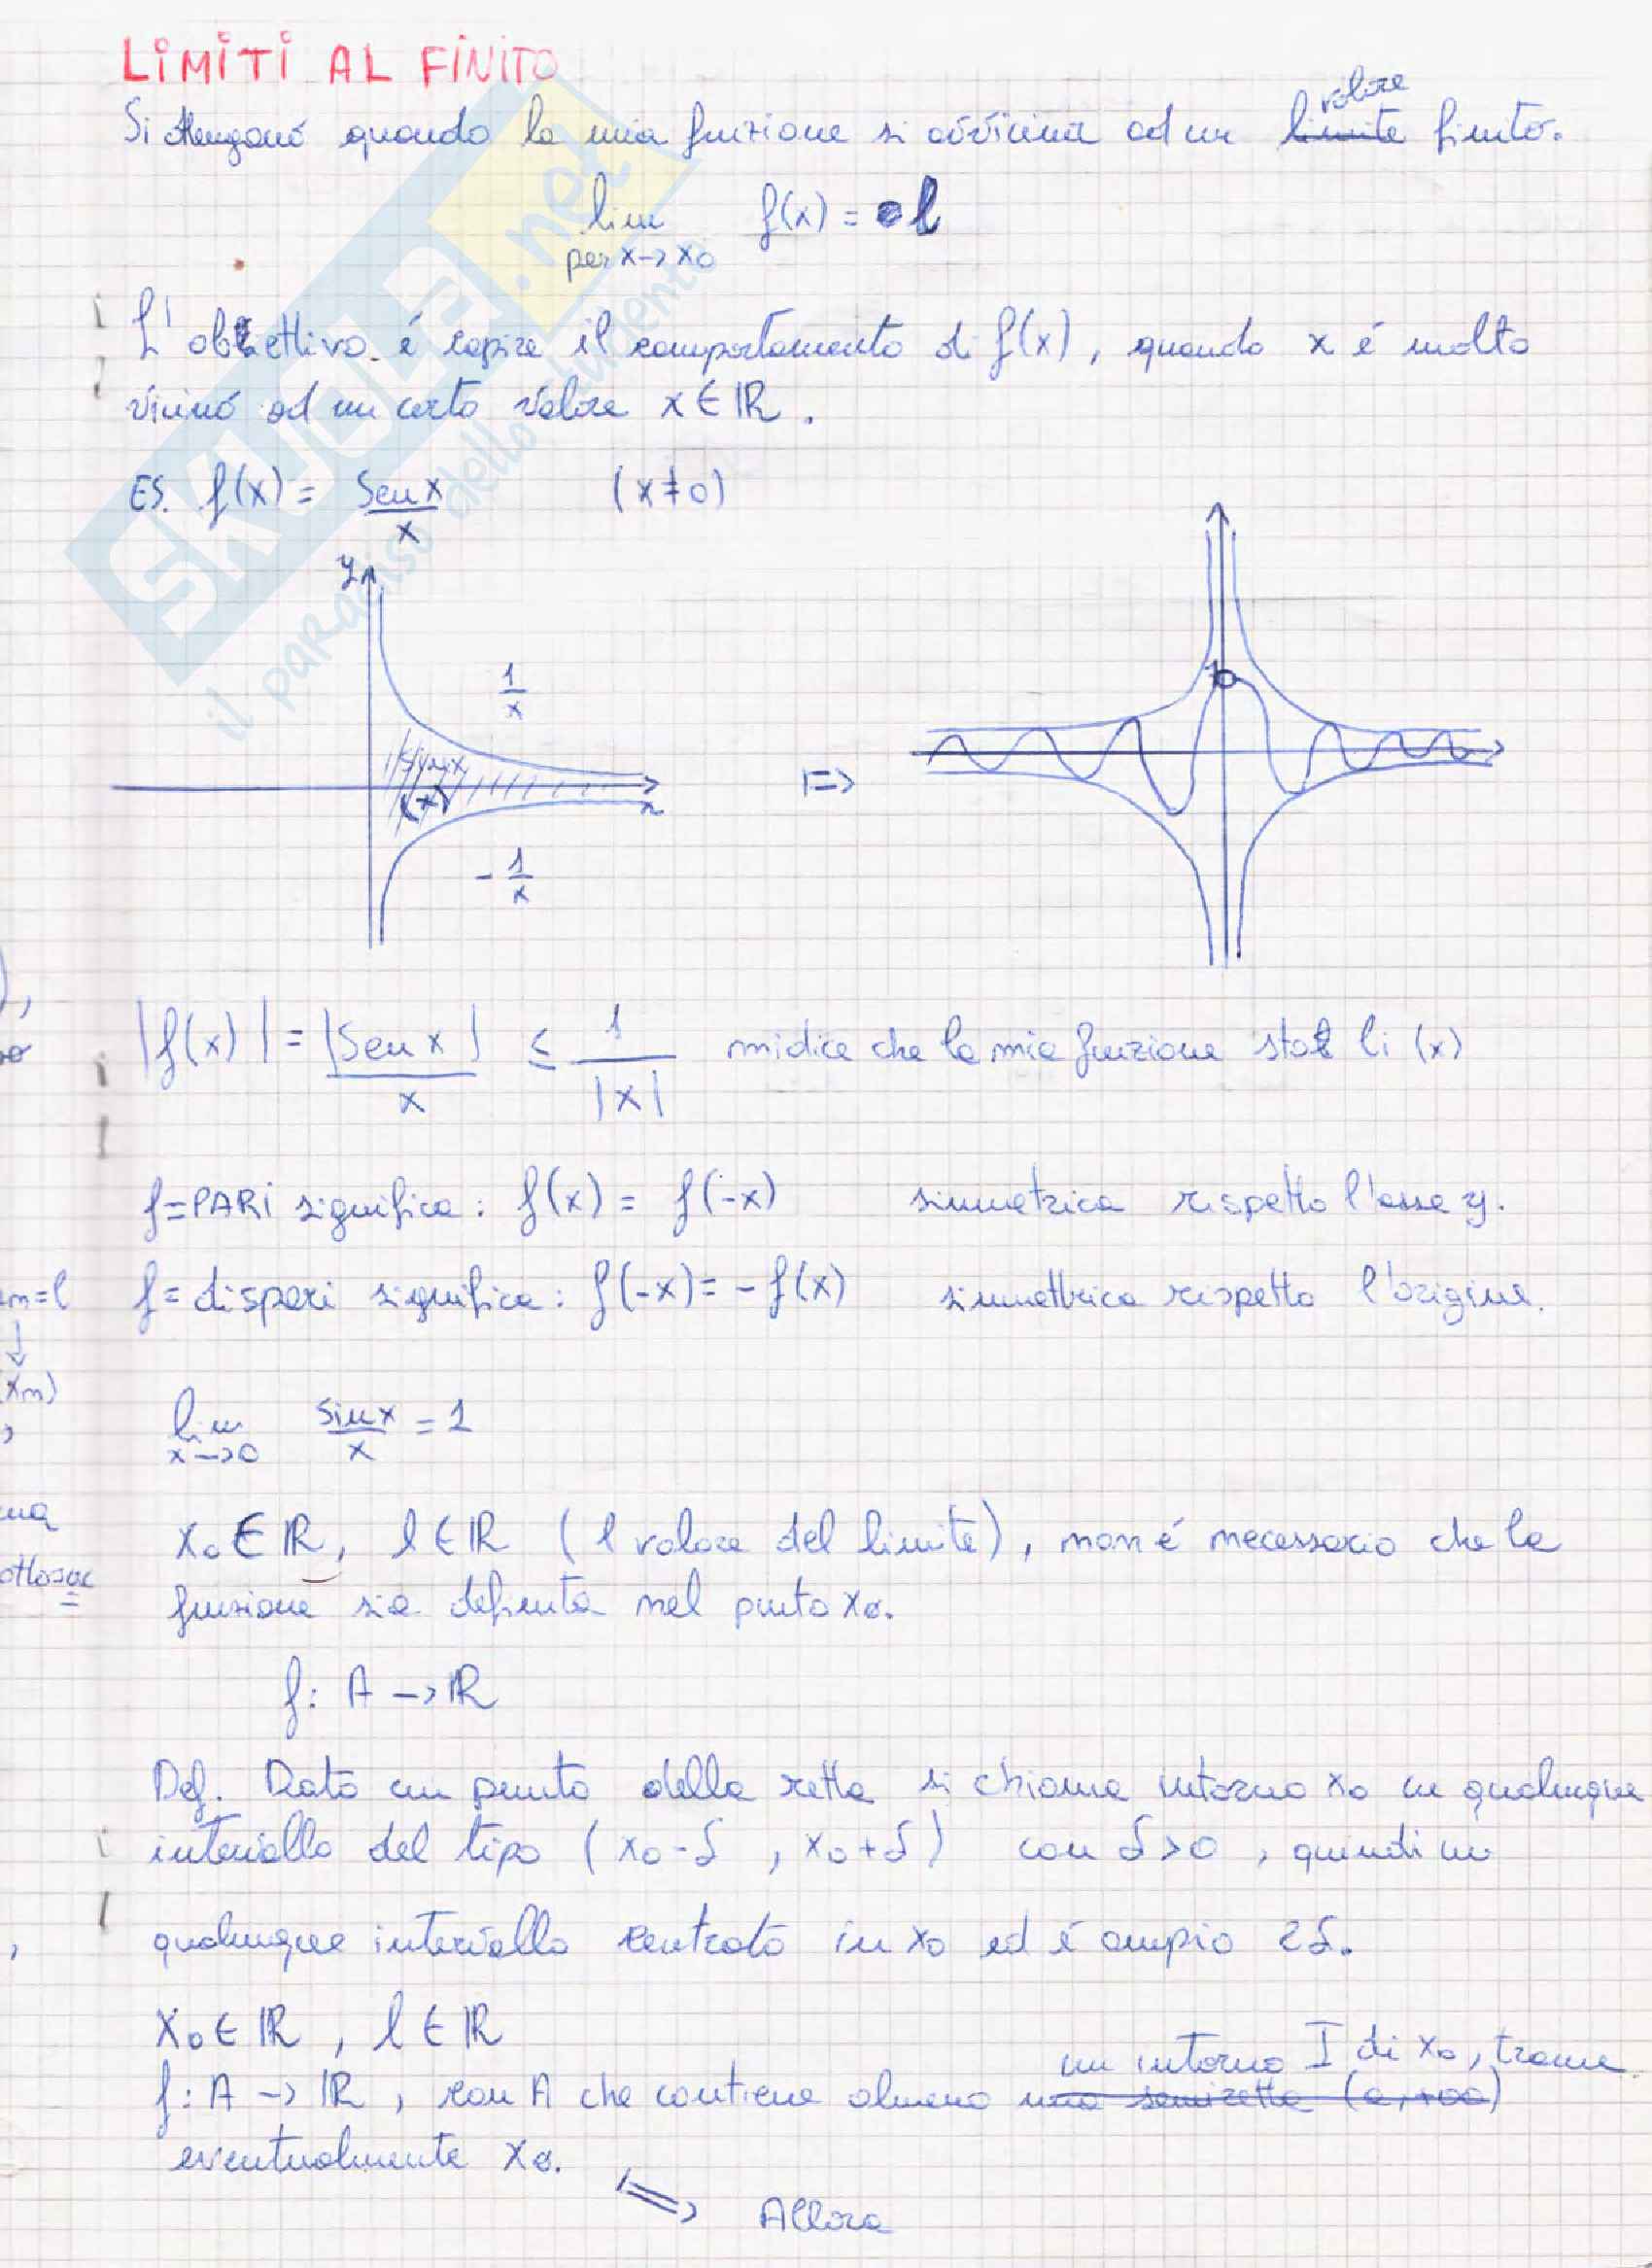 LIMITI AL FINITO
Si ottengono quando la mia funzione si avvicina ad un limite valore finito.
lim f(x) = l
per x -> x₀
L'obiettivo è capire il comportamento di f(x), quando x è molto
vicino ad un certo valore x ∈ ℝ.
ES. f(x) = sen x / x (x ≠ 0)
y
1/x
sin x
(x)
x
-1/x
=>
1
|f(x)| = |sen x| / x ≤ 1 / |x| mi dice che la mia funzione sta lì (x)
f = PARI significa: f(x) = f(-x) simmetrica rispetto l'asse y.
f = dispari significa: f(-x) = -f(x) simmettrica rispetto l'origine.
lim sin x / x = 1
x -> 0
x₀ ∈ ℝ, l ∈ ℝ (l valore del limite), non è necessario che la
funzione sia definita nel punto x₀.
f: A -> ℝ
Def. Dato un punto della retta si chiama intorno x₀ un qualunque
intervallo del tipo (x₀-δ, x₀+δ) con δ>0, quindi un
qualunque intervallo centrato in x₀ ed è ampio 2δ.
x₀ ∈ ℝ, l ∈ ℝ
un intorno I di x₀, tranne
f: A -> ℝ, con A che contiene almeno una semiretta (a, +∞)
eventualmente x₀.
=> Allora
m=l
↓
(xm)
SKUOLA.net
il paradiso dello studente